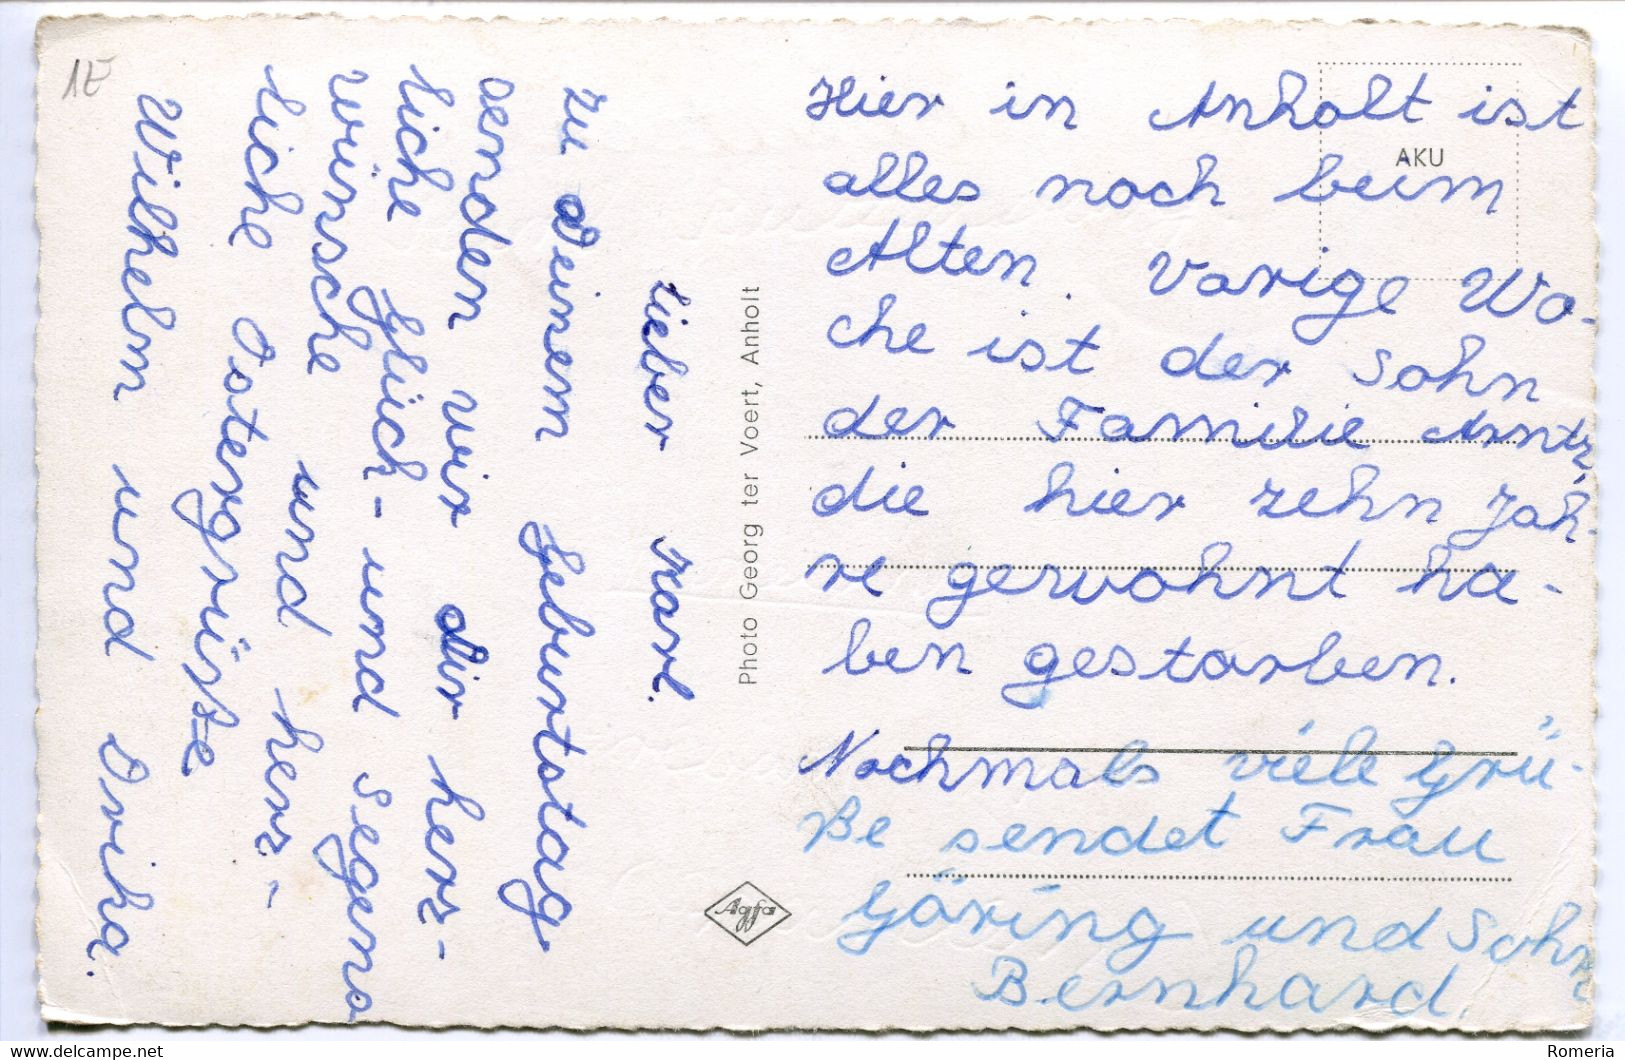 1E
Lieber Karl.
Zu Deinem Geburtstag
senden wir dir herz-
liche Glück- und Segens
wünsche und herz-
liche Ostergrüsse
Wilhelm und
Photo Georg ter Voert, Anholt
Agfa
AKU
Hier in Anholt ist
alles noch beim
Alten. Vorige Wo-
che ist der Sohn
der Familie Arntz,
die hier zehn Jah-
re gewohnt ha-
ben gestorben.
Nochmals viele Grü-
ße sendet Frau
Göring und Sohn
Bernhard.
Romeria
www.delcampe.net